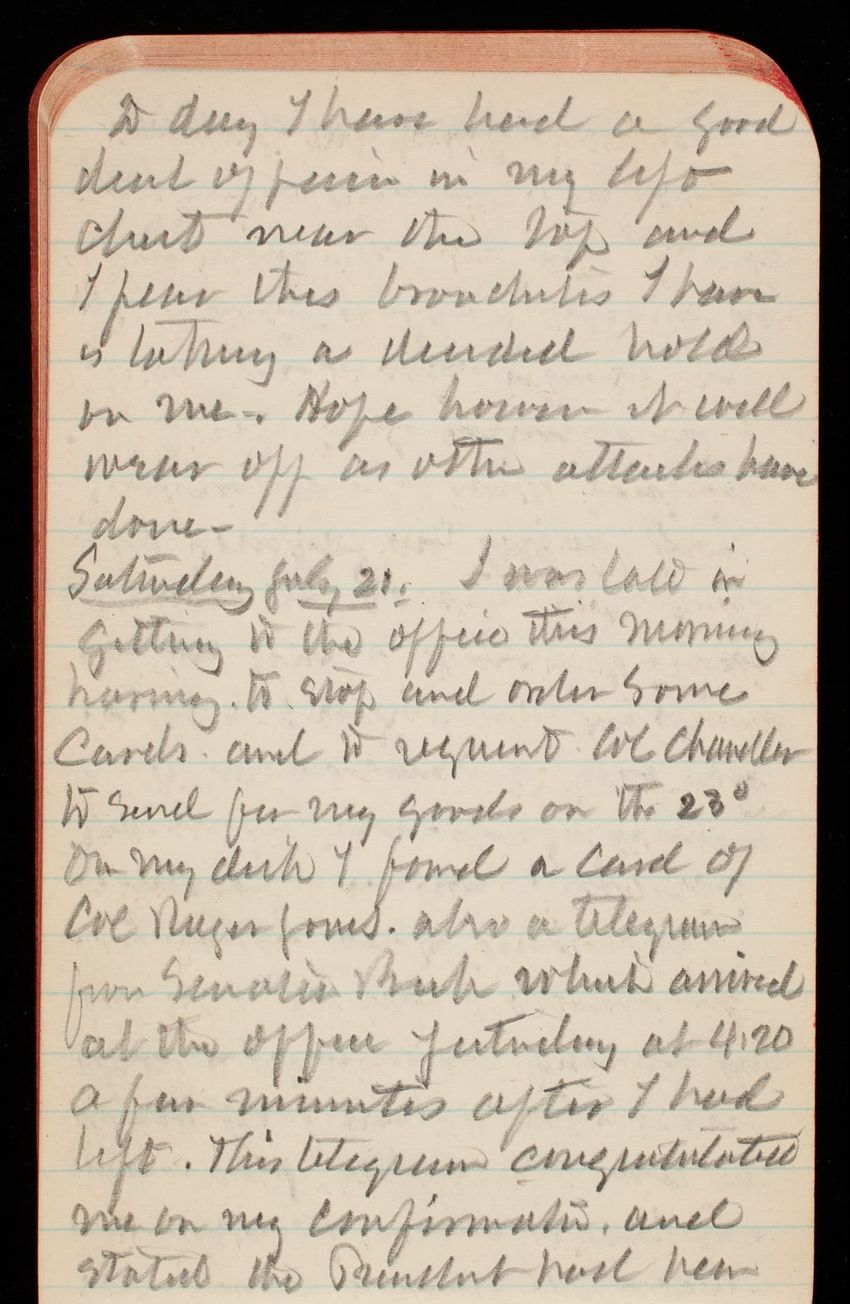 To day I have had a good
deal of pain in my left
chest near the top and
I fear this bronchitis I have
is taking a decided hold
on me-. Hope however it will
wear off as other attacks have
done-
Saturday July 21. I was late in
getting to the office this morning
having to stop and order some
Cards. and to request Col Chandler
to send for my goods on the 23d
On my desk I found a card of
Col Roger Jones. also a telegram
from Senator which arrived
at the office yesterday at 4.20
a few minutes after I had
left. This telegram congratulated
me on my confirmation. and
stated the President had been